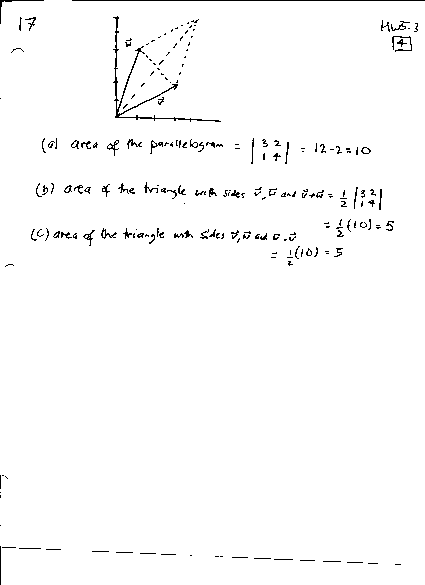 17
HW5.3
4
w⃗
v⃗
(a) area of the parallelogram = | 3 2 | = 12-2=10
| 1 4 |
(b) area of the triangle with sides v⃗, w⃗ and v⃗+w⃗ = 1/2 | 3 2 |
| 1 4 |
= 1/2 (10) = 5
(c) area of the triangle with sides v⃗, w⃗ and w⃗-v⃗
= 1/2 (10) = 5